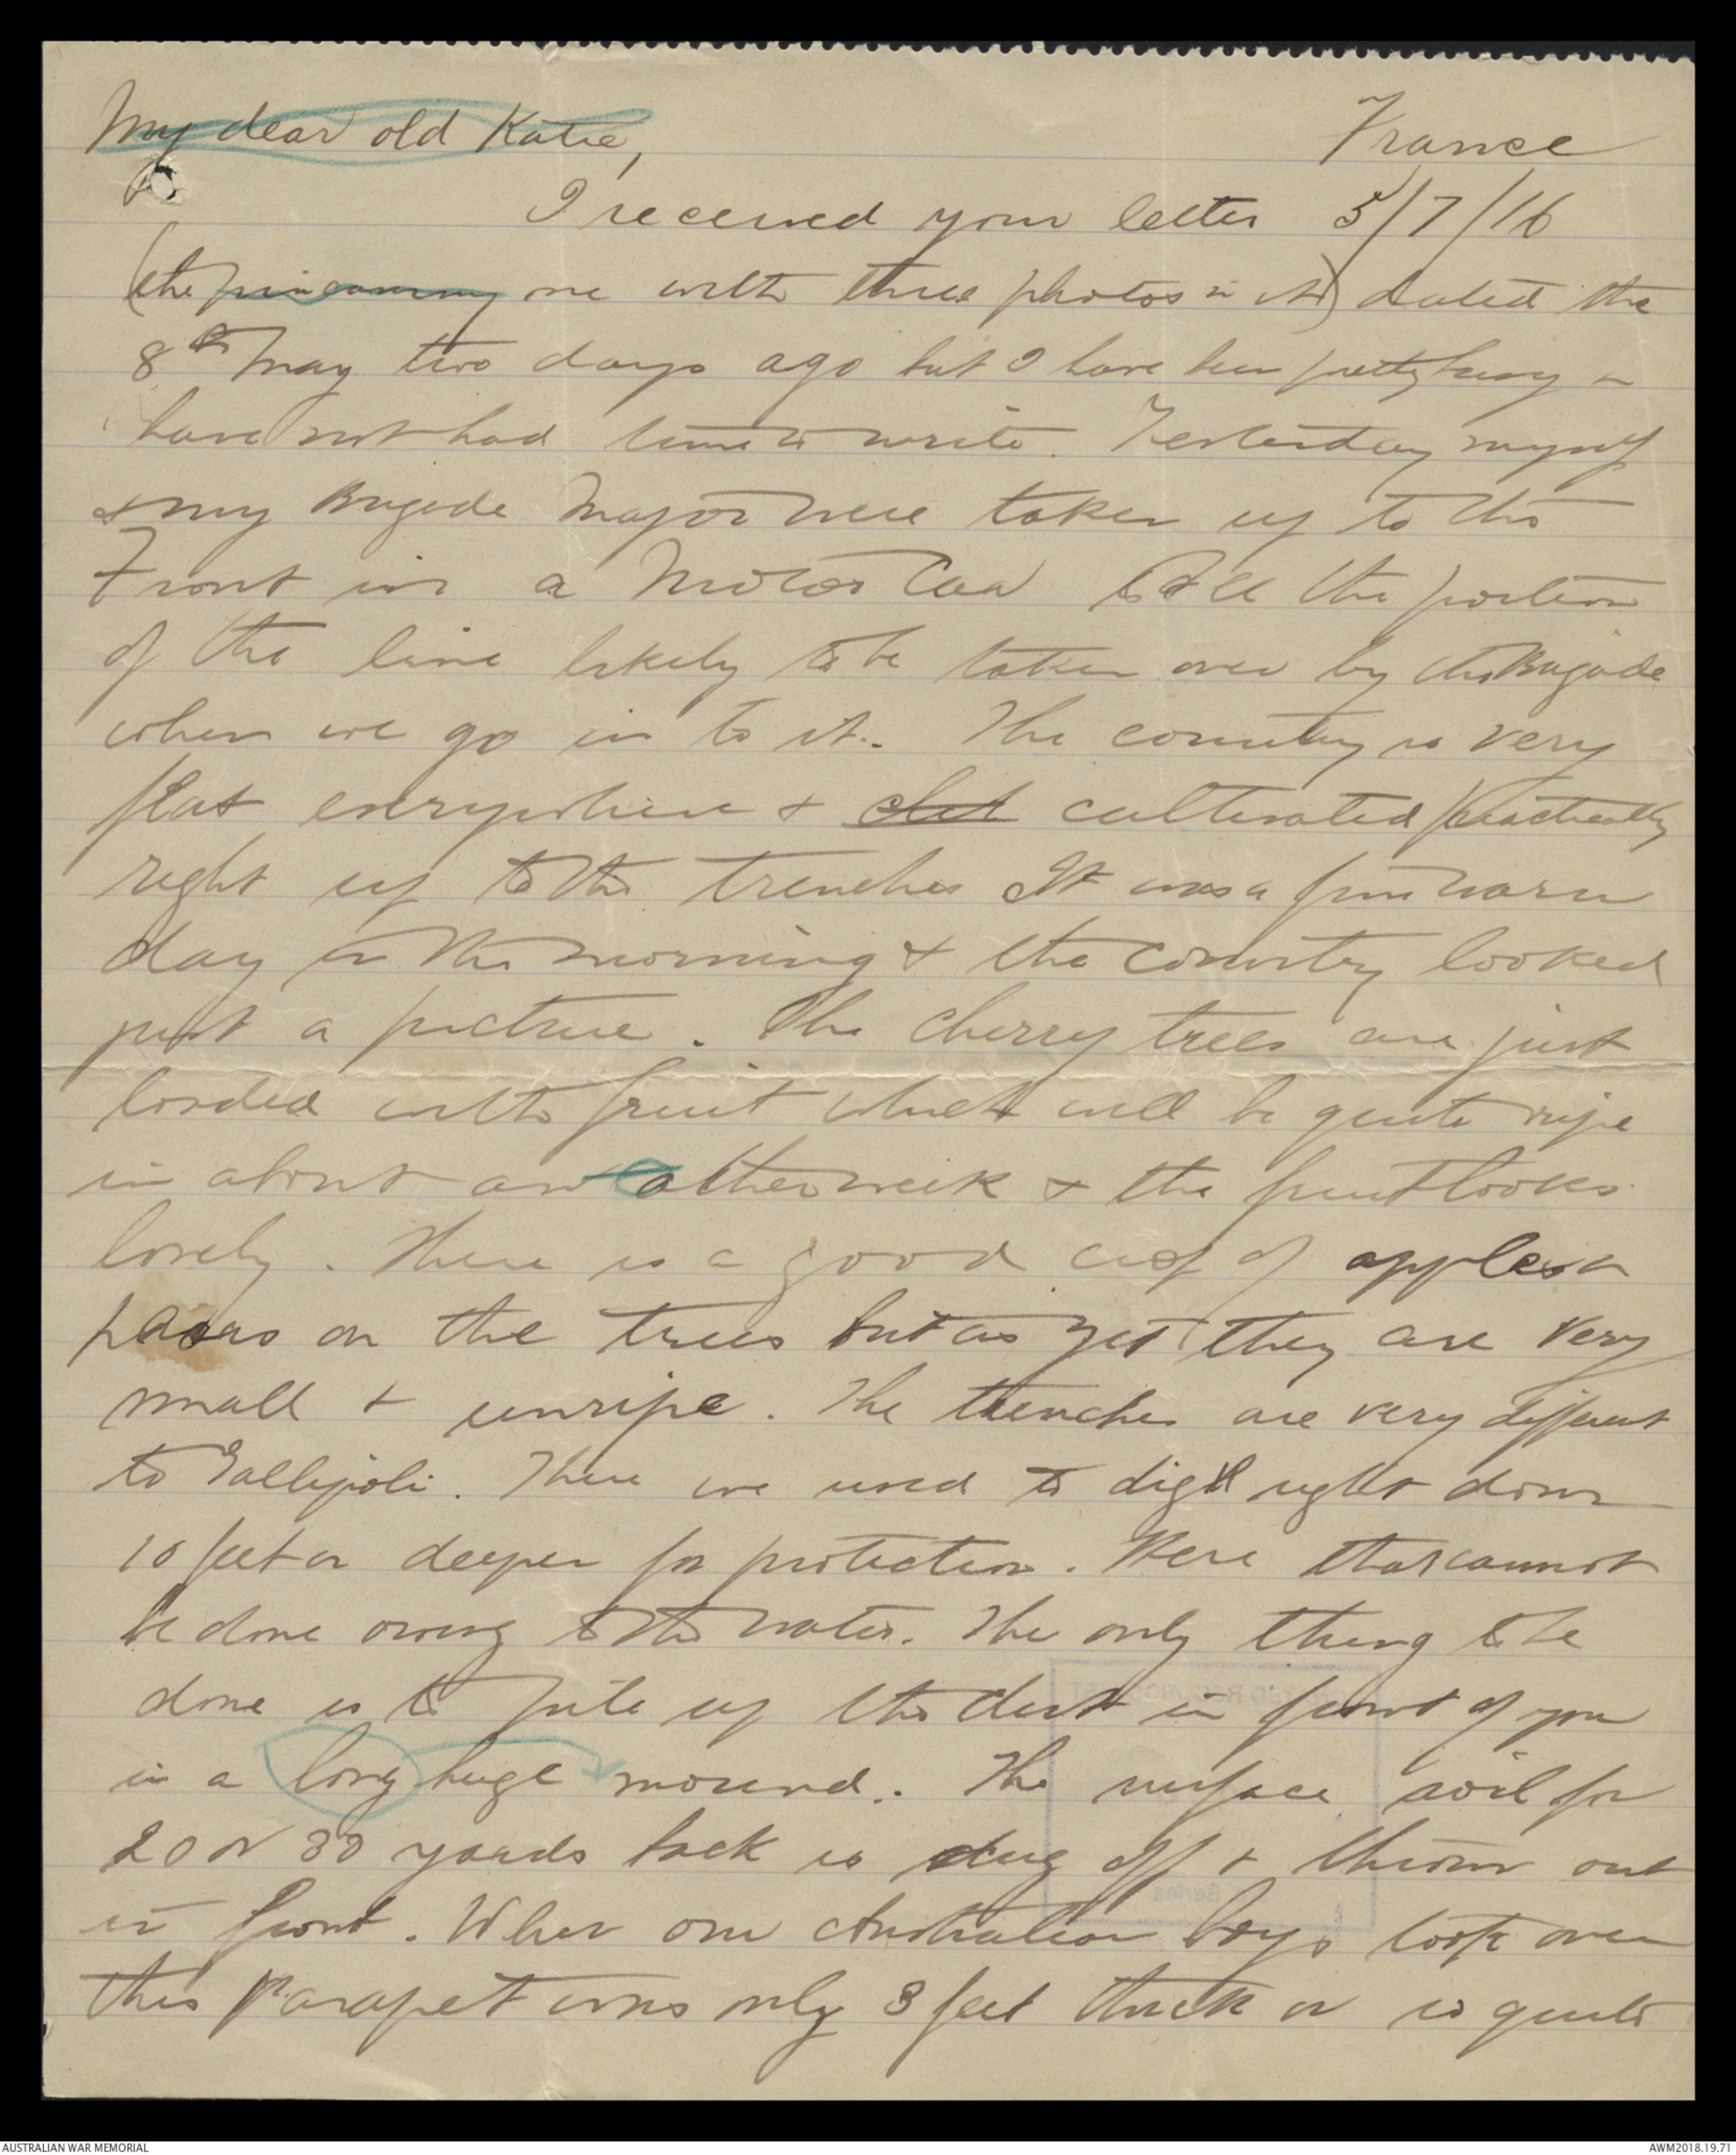 My dear old Katie,
France
I received your letter 5/7/16
(the one with three photos in it) dated the
8th May two days ago but I have been pretty busy &
have not had time to write. Yesterday myself
& my Brigade Major were taken up to the
Front in a Motor Car to see the portion
of the line likely to be taken over by this Brigade
when we go in to it. The country is very
flat everywhere & cultivated practically
right up to the trenches It was a fine warm
day in the morning & the country looked
just a picture. The cherry trees are just
loaded with fruit which will be quite ripe
in about another week & the fruit looks
lovely. There is a good crop of apples &
pears on the trees but as yet they are very
small & unripe. The trenches are very different
to Gallipoli. There we used to dig right down
10 feet or deeper for protection. Here that cannot
be done owing to the water. The only thing to be
done is to pile up the dirt in front of you
in a long huge mound. The surface soil for
20 or 30 yards back is dug off & thrown out
in front. When our Australian boys took over
this Parapet was only 3 feet thick or is quite
AUSTRALIAN WAR MEMORIAL
AWM2018.19.71